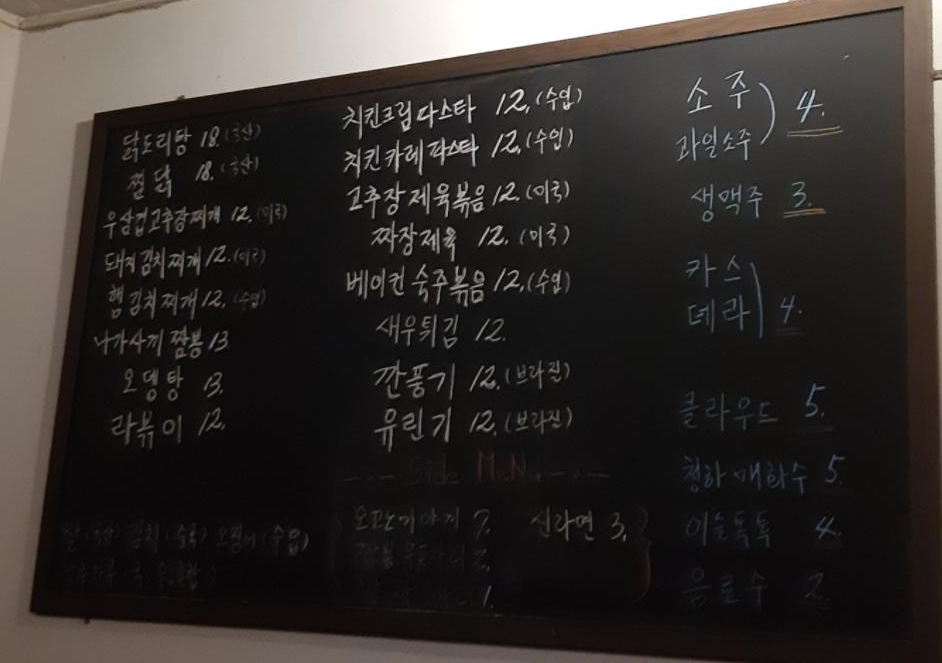 닭도리탕 18. (국산)
찜닭 18. (국산)
우삼겹고추장찌개 12. (미국)
돼지김치찌개 12. (미국)
햄김치찌개 12. (수입)
나가사끼 짬뽕 13
오뎅탕 13.
라볶이 12.
쌀 (국산) 김치 (중국) 오징어 (수입)
치킨크림파스타 12. (수입)
치킨카레파스타 12. (수입)
고추장제육볶음 12. (미국)
짜장제육 12. (미국)
베이컨숙주볶음 12. (수입)
새우튀김 12.
깐풍기 12. (브라질)
유린기 12. (브라질)
--- Side MeNu ---
7. 신라면 3.
2.
1.
소주
과일소주 4.
생맥주 3.
카스
테라 4.
클라우드 5.
청하·매화수 5.
이슬톡톡 4.
음료수 2.